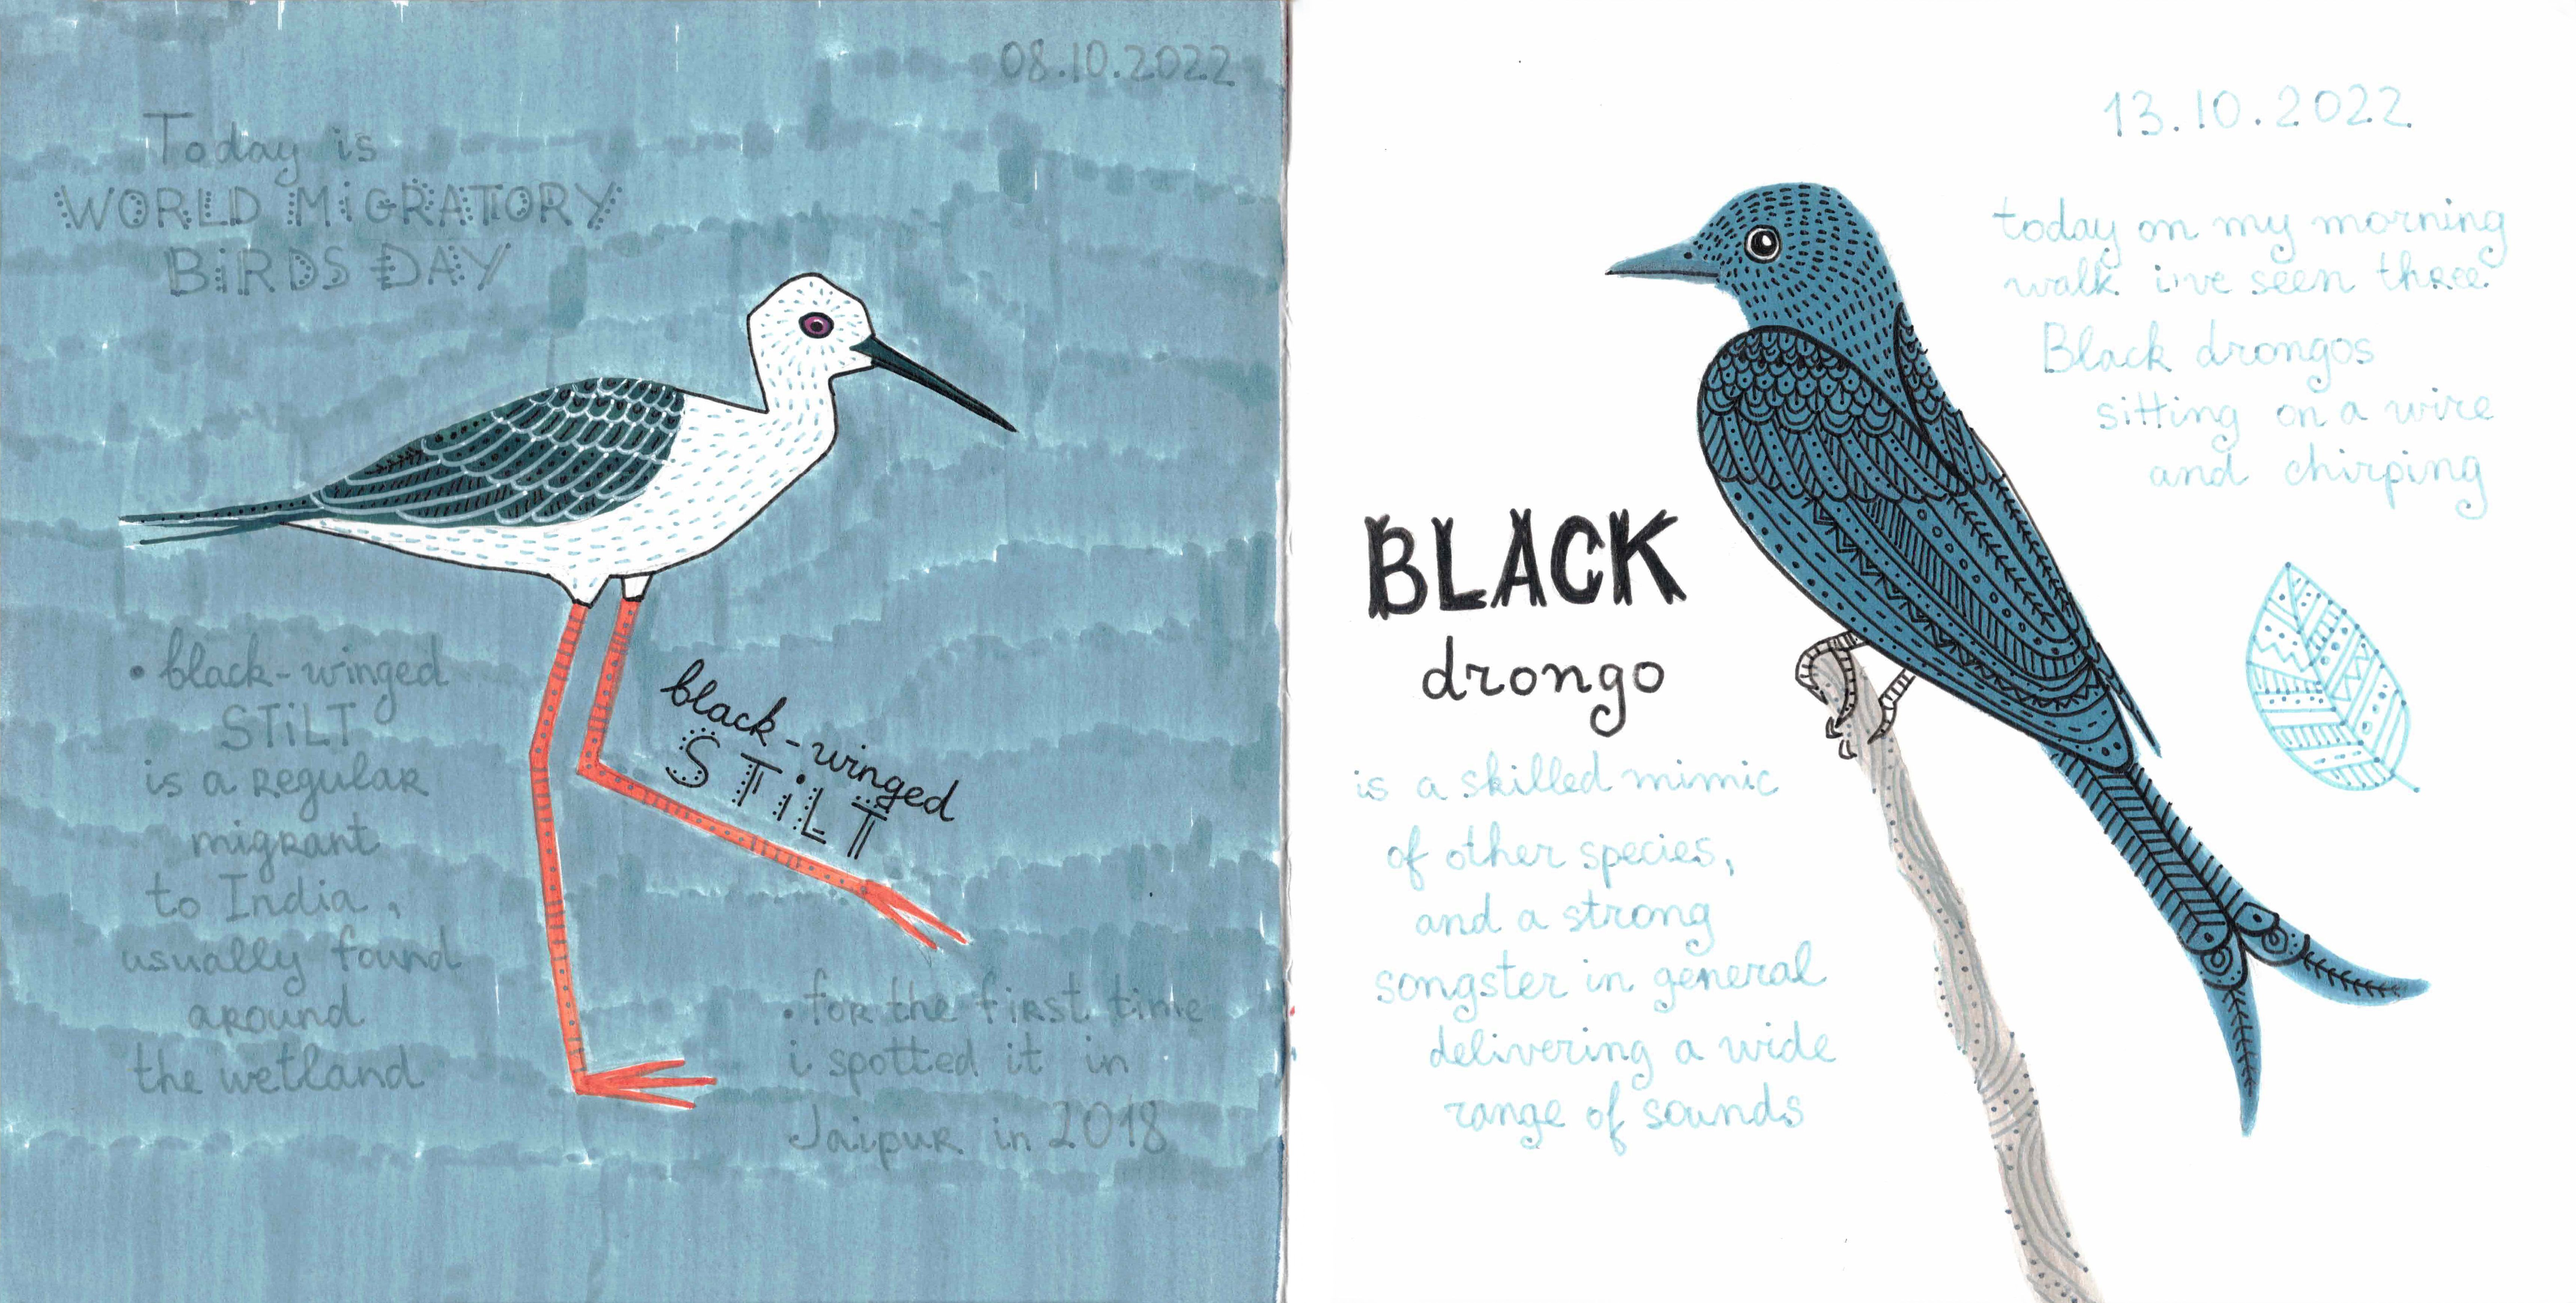 08.10.2022
Today is
WORLD MiGRATORY
BiRDS DAY
• black-winged
STiLT
is a regular
migrant
to India,
usually found
around
the wetland
black-winged
STiLT
• for the first time
i spotted it in
Jaipur in 2018
13.10.2022
today on my morning
walk i've seen three
Black drongos
sitting on a wire
and chirping
BLACK
drongo
is a skilled mimic
of other species,
and a strong
songster in general
delivering a wide
range of sounds